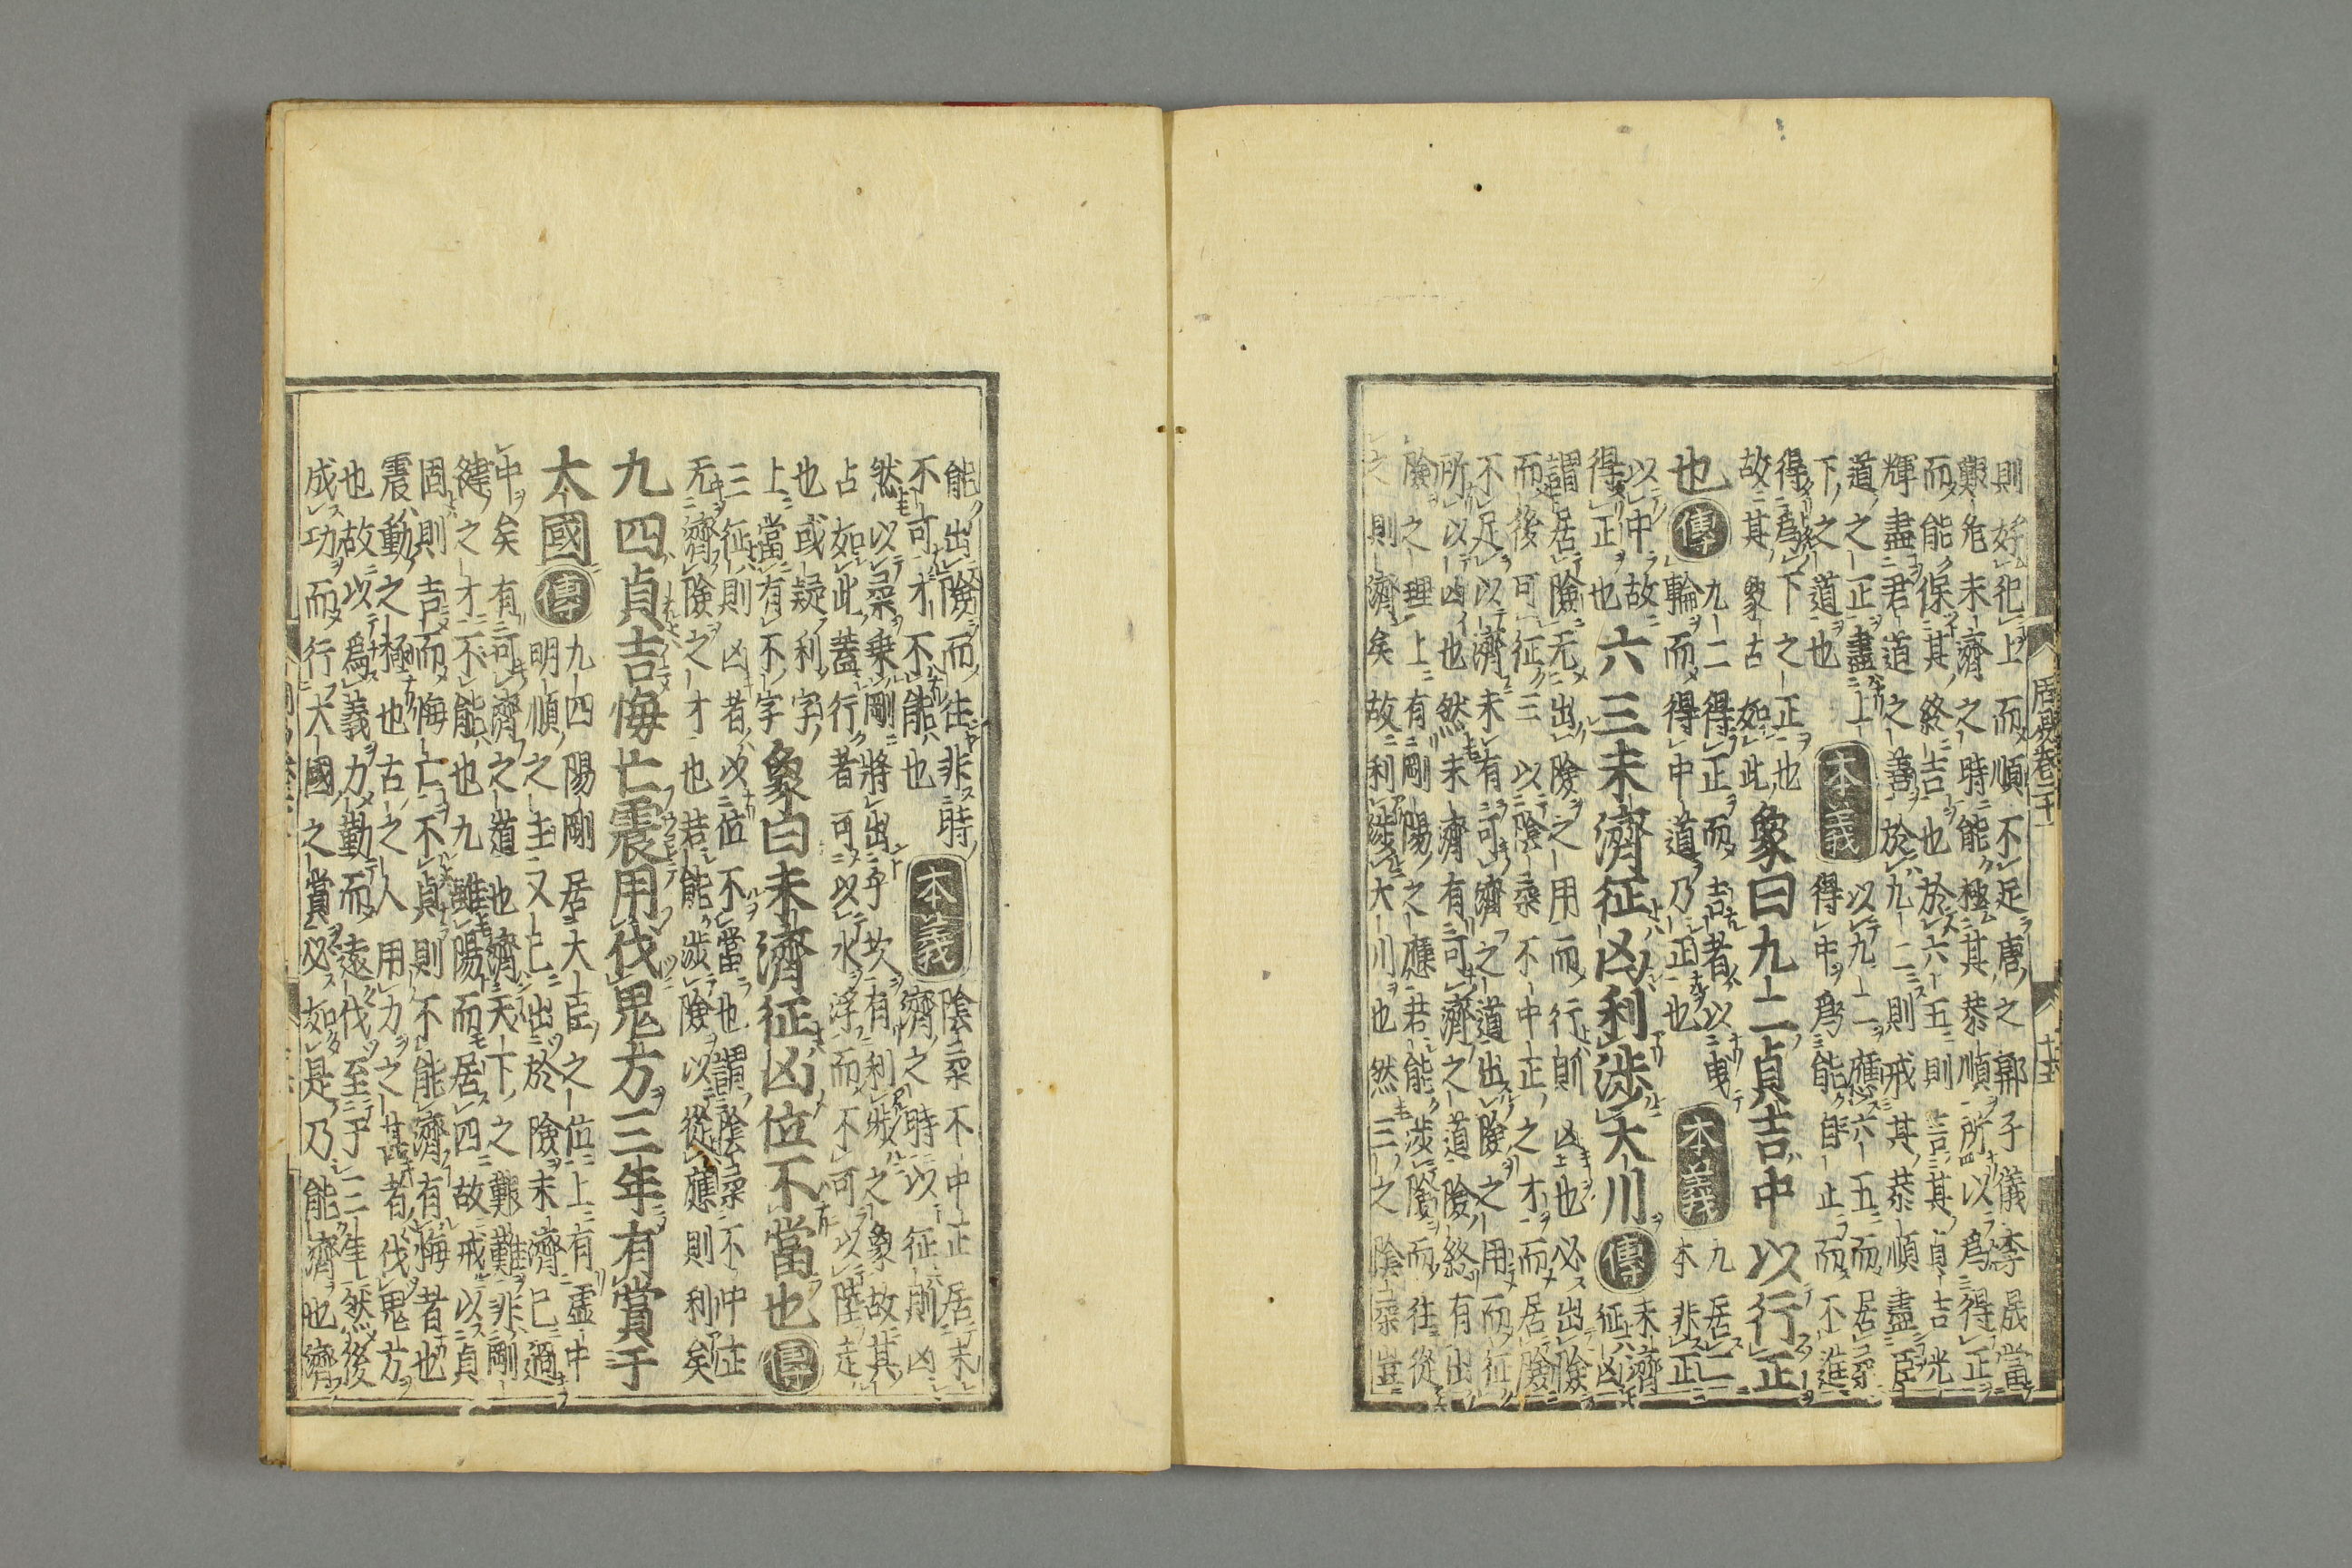 則好犯上而順不足唐之郭子儀李晟當
艱危未濟之時能極其恭順所以爲得正
而能保其終吉也於六五則言其貞吉光
輝盡君道之善於九二則戒其恭順盡臣
道之正盡上
下之道也
本義
以九二應六五而居柔
得中爲能自止而不進
得爲下之正也
故其象占如此
象曰九二貞吉中以行正
也
傳
九二得正而吉者以曳
輪而得中道乃正也
本義
九居二
本非正
以中故
得正也
六三未濟征凶利涉大川
傳
未濟征凶
謂居險无出險之用而行則凶也必出險
而後可征三以陰柔不中正之才而居險
不足以濟未有可濟之道出險之用而征
所以凶也然未濟有可濟之道險終有出
險之理上有剛陽之應若能涉險而往從
之則濟矣故利涉大川也然三之陰柔豈
能出險而往非時
不可才不能也
本義
陰柔不中正居未
濟之時以征則凶
然以柔乘剛將出乎坎有利涉之象故其
占如此蓋行者可以水浮而不可以陸走
也或疑利字
上當有不字
象曰未濟征凶位不當也
傳
三征則凶者以位不當也謂陰柔不中正
无濟險之才也若能涉險以從應則利矣
九四貞吉悔亡震用伐鬼方三年有賞于
大國
傳
九四陽剛居大臣之位上有虛中
明順之主又已出於險未濟已過
中矣有可濟之道也濟天下之艱難非剛
健之才不能也九雖陽而居四故戒以貞
固則吉而悔亡不貞則不能濟有悔者也
震動之極也古之人用力之甚者伐鬼方
也故以爲義力勤而遠伐至于三年然後
成功而行大國之賞必如是乃能濟也濟